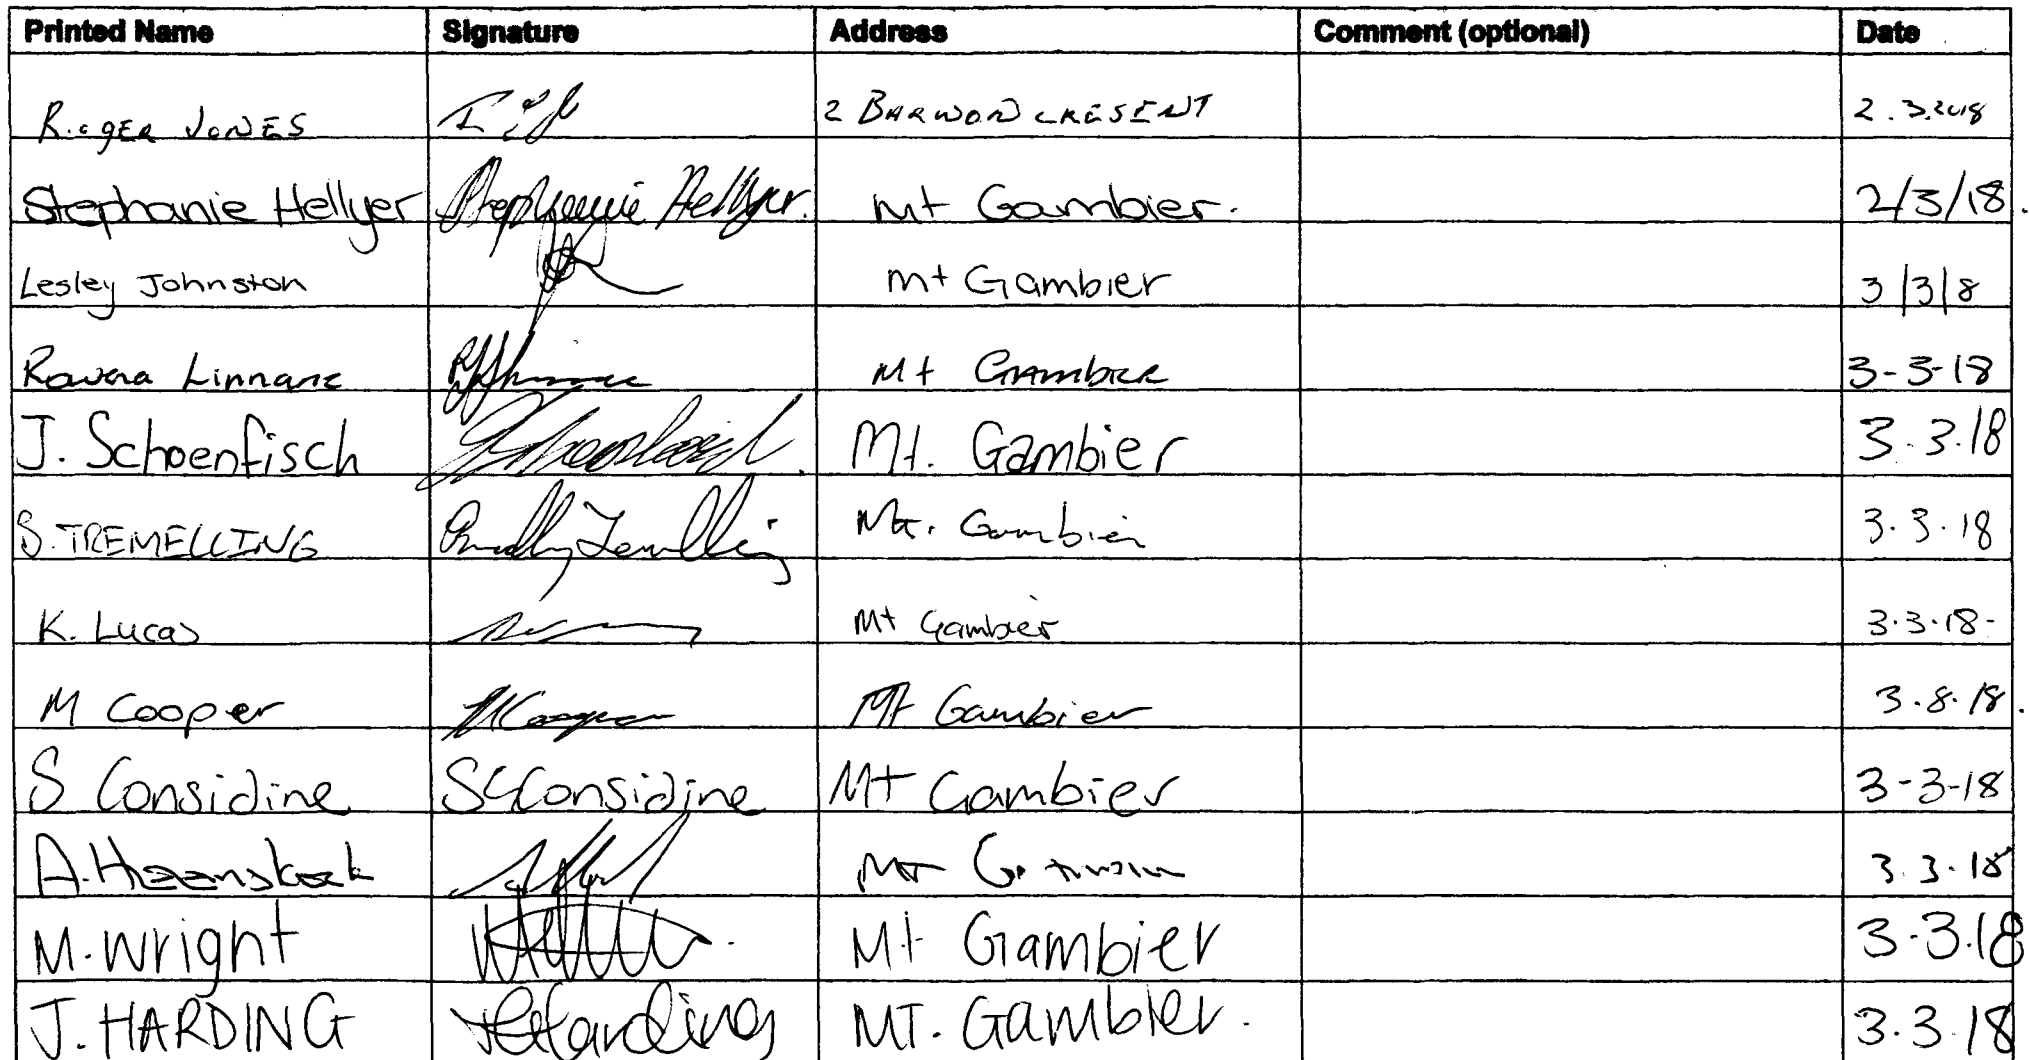 Printed Name Signature Address Comment (optional) Date
ROGER JONES 2 BARWON CRESENT 2.3.2018
Stephanie Hellyer Stephanie Hellyer. Mt Gambier. 2/3/18.
Lesley Johnston Mt Gambier 3/3/8
Rowena Linnane Mt Gambier 3-3-18
J. Schoenfisch Mt. Gambier 3.3.18
S. TREMELLING Mt. Gambier 3.3.18
K. Lucas Mt Gambier 3.3.18-
M Cooper MCooper Mt Gambier 3.8.18.
S Considine SGConsidine Mt Gambier 3-3-18
A. Mt 3.3.18
M. Wright Mt Gambier 3.3.18
J. HARDING JHarding MT. Gambier. 3.3.18